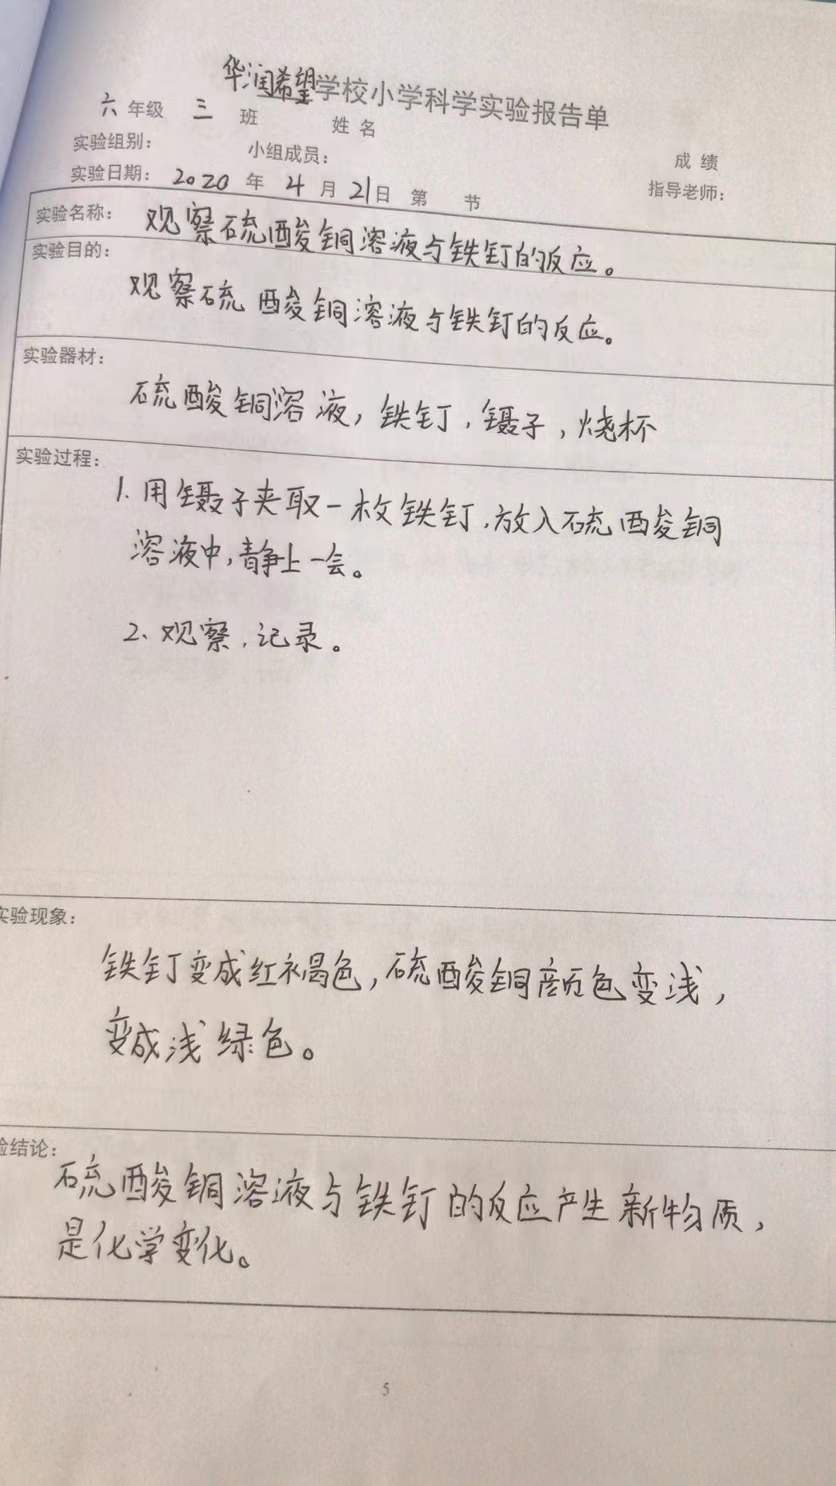 华润希望学校小学科学实验报告单
六年级 三 班 姓名
实验组别： 小组成员： 成绩
实验日期： 2020 年 4 月 21日 第 节 指导老师：
实验名称： 观察硫酸铜溶液与铁钉的反应。
实验目的：
观察硫酸铜溶液与铁钉的反应。
实验器材：
硫酸铜溶液，铁钉，镊子，烧杯
实验过程：
1. 用镊子夹取一枚铁钉，放入硫酸铜
溶液中，静止一会。
2、观察，记录。
实验现象：
铁钉变成红褐色，硫酸铜颜色变浅，
变成浅绿色。
验结论：
硫酸铜溶液与铁钉的反应产生新物质，
是化学变化。
5